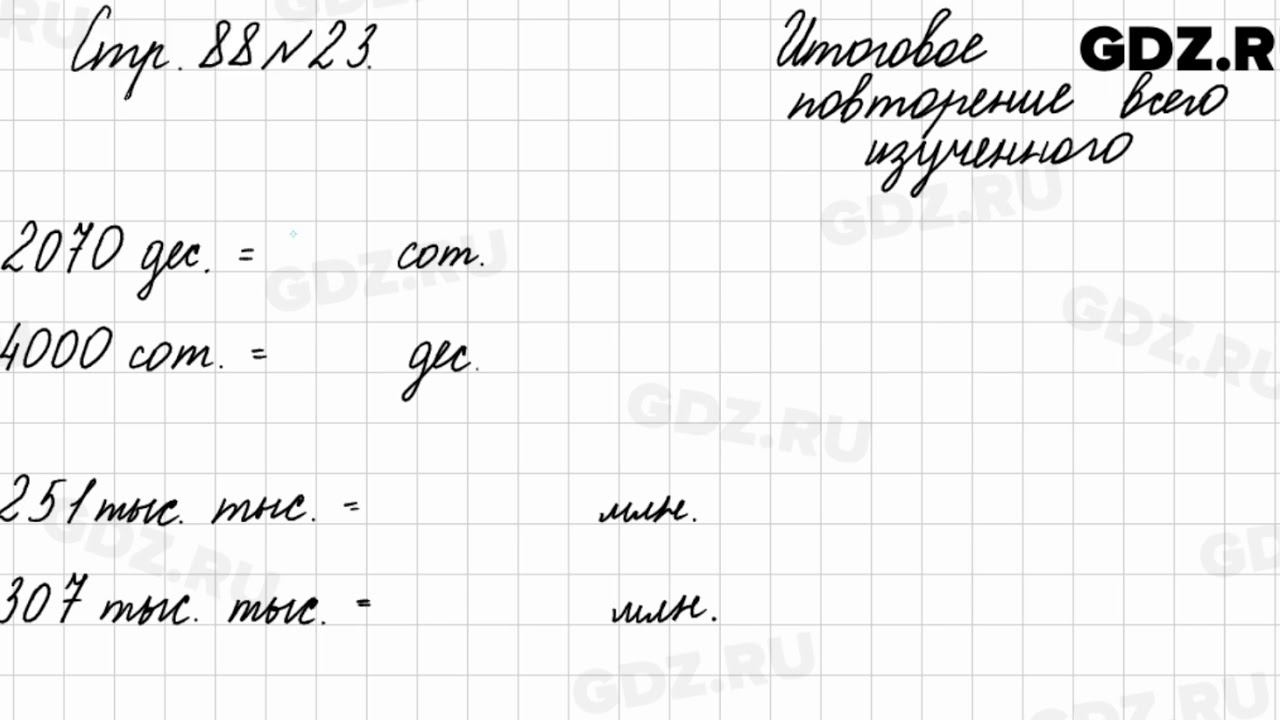 Стр. 88 № 23.
Итоговое
повторение всего
изученного
GDZ.R
2070 дес. = сот.
4000 сот. = дес.
251 тыс. тыс. = млн.
307 тыс. тыс. = млн.
GDZ.RU
GDZ.RU
GDZ.RU
GDZ.RU
GDZ.RU
GDZ.RU